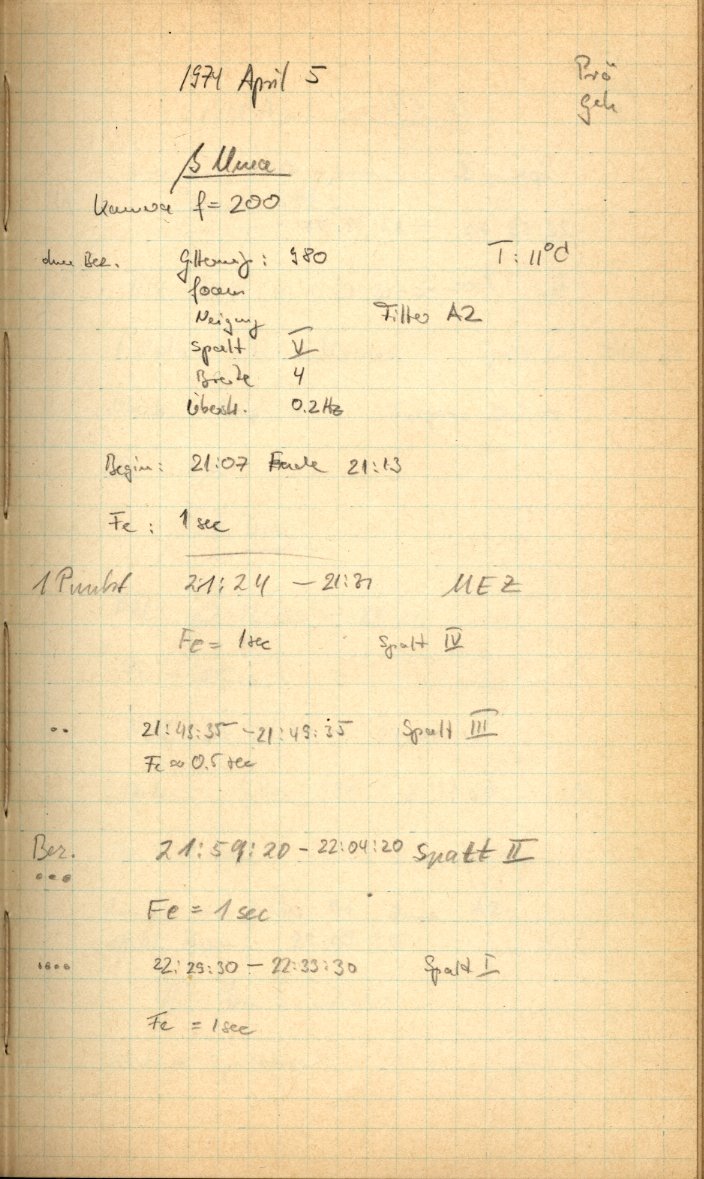 1974 April 5
Prö
Geh
β Umea
Kamera f = 200
ohne Bez. Gitterneig: 980 T: 11°C
focus
Neigung Filter A2
Spalt V
Breite 4
überstr. 0.2 Hz
Begin: 21:07 Ende 21:13
Fe: 1 sec
1 Punkt 21:24 – 21:31 MEZ
Fe = 1 sec Spalt IV
•• 21:43:35 – 21:49:35 Spalt III
Fe ≈ 0.5 sec
Bez. 21:59:20 – 22:04:20 Spalt II
•••
Fe = 1 sec
•••• 22:29:30 – 22:33:30 Spalt I
Fe = 1 sec